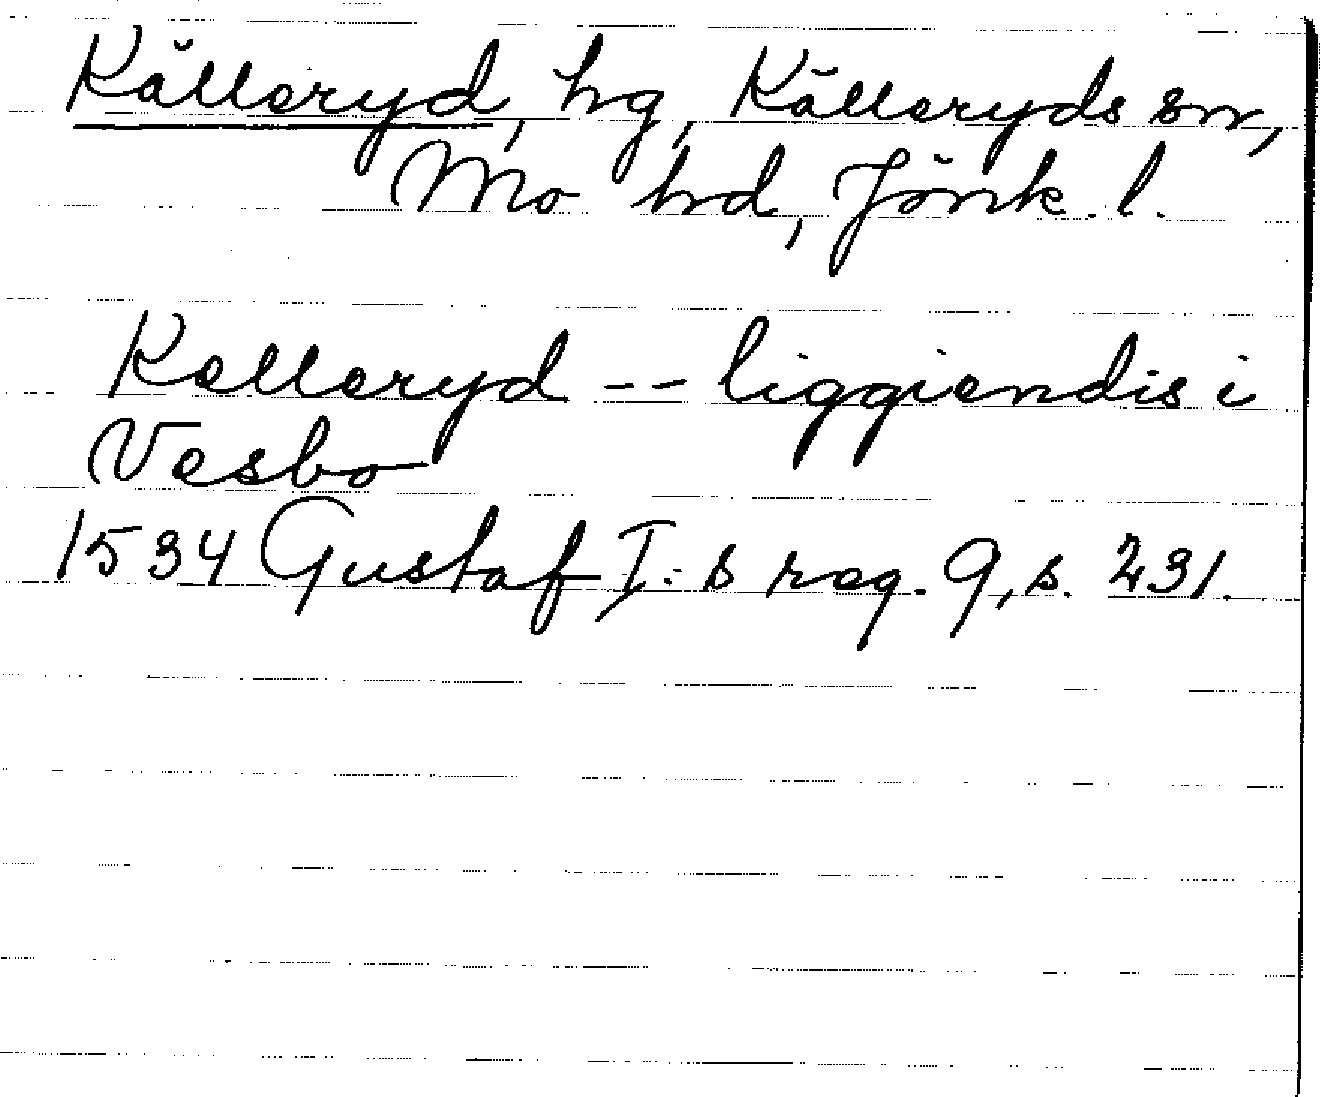 Källeryd, hg, Källeryds sn,
Mo hd, Jönk. l.
Kelleryd -- liggiendis i
Vesbo
1534 Gustaf I:s reg. 9, s. 231.